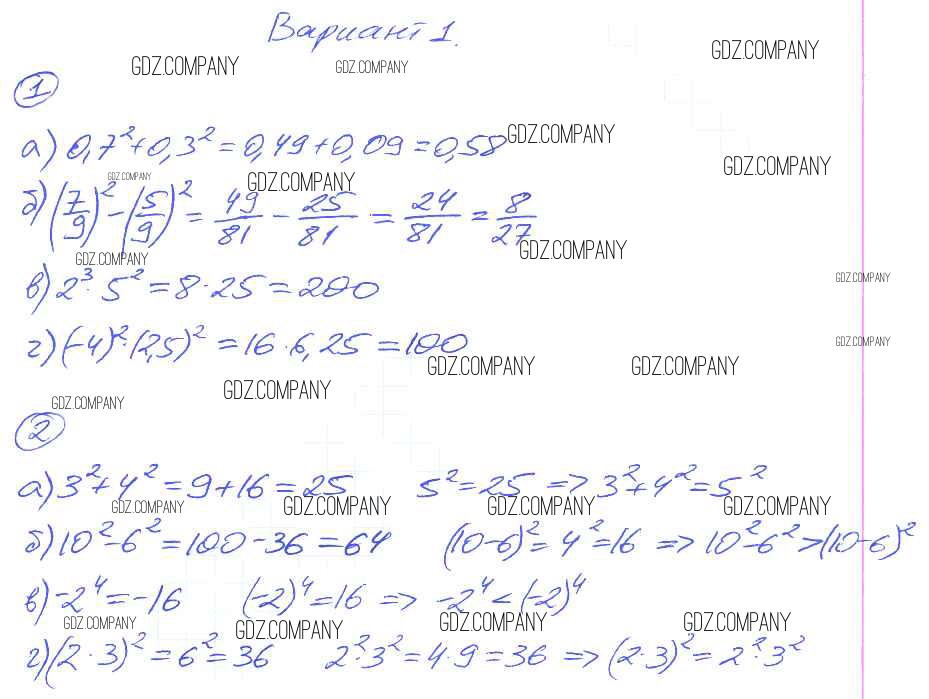 Вариант 1.
GDZ.COMPANY GDZ.COMPANY GDZ.COMPANY
1
а) 0,7² + 0,3² = 0,49 + 0,09 = 0,58 GDZ.COMPANY
GDZ.COMPANY
GDZ.COMPANY GDZ.COMPANY
б) (7/9)² - (5/9)² = 49/81 - 25/81 = 24/81 = 8/27
GDZ.COMPANY GDZ.COMPANY
GDZ.COMPANY
в) 2³ · 5² = 8 · 25 = 200
г) (-4)² · (2,5)² = 16 · 6,25 = 100
GDZ.COMPANY
GDZ.COMPANY GDZ.COMPANY
GDZ.COMPANY GDZ.COMPANY
2
а) 3² + 4² = 9 + 16 = 25 5² = 25 => 3² + 4² = 5²
GDZ.COMPANY GDZ.COMPANY GDZ.COMPANY GDZ.COMPANY
б) 10² - 6² = 100 - 36 = 64 (10 - 6)² = 4² = 16 => 10² - 6² > (10 - 6)²
в) -2⁴ = -16 (-2)⁴ = 16 => -2⁴ < (-2)⁴
GDZ.COMPANY GDZ.COMPANY GDZ.COMPANY GDZ.COMPANY
г) (2 · 3)² = 6² = 36 2² · 3² = 4 · 9 = 36 => (2 · 3)² = 2² · 3²